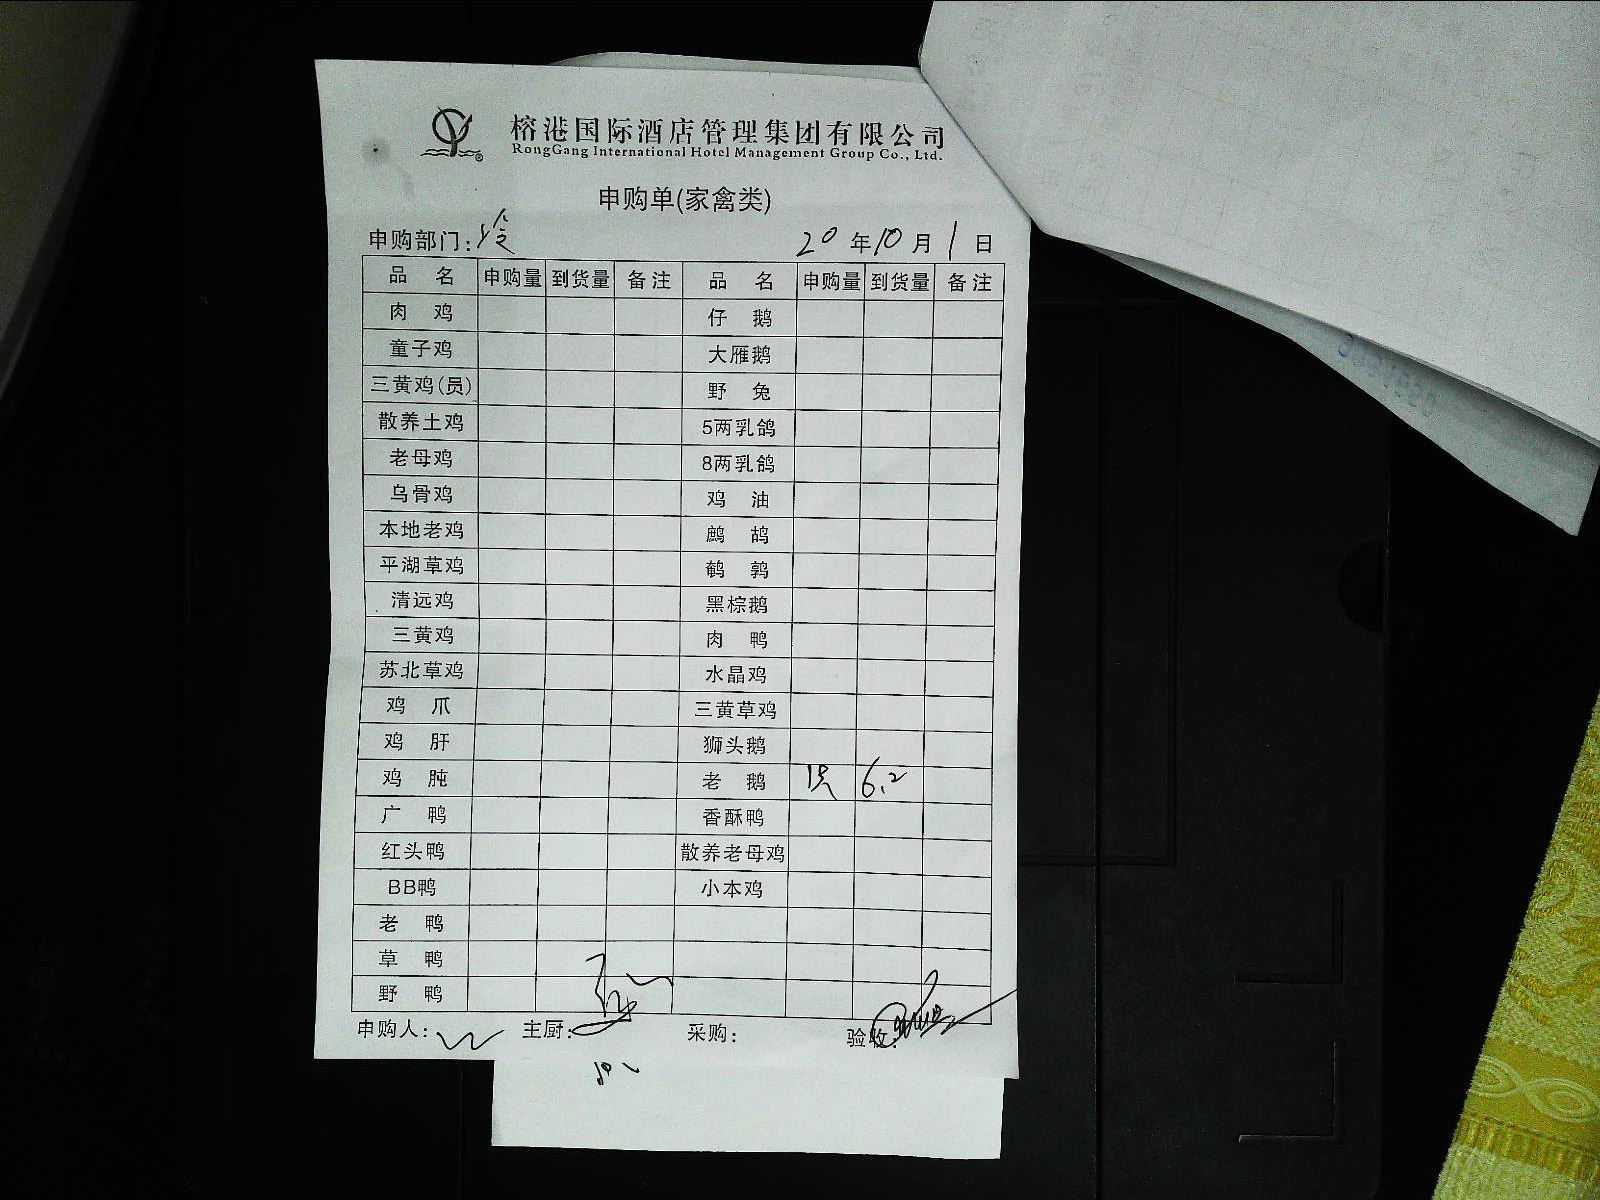 榕港国际酒店管理集团有限公司
RongGang International Hotel Management Group Co., Ltd.
申购单(家禽类)
申购部门:冷 20年10月1日
品名 申购量 到货量 备注 品名 申购量 到货量 备注
肉鸡 仔鹅
童子鸡 大雁鹅
三黄鸡(员) 野兔
散养土鸡 5两乳鸽
老母鸡 8两乳鸽
乌骨鸡 鸡油
本地老鸡 鹧鸪
平湖草鸡 鹌鹑
清远鸡 黑棕鹅
三黄鸡 肉鸭
苏北草鸡 水晶鸡
鸡爪 三黄草鸡
鸡肝 狮头鹅
鸡肫 老鹅 1只 6.2
广鸭 香酥鸭
红头鸭 散养老母鸡
BB鸭 小本鸡
老鸭
草鸭
野鸭
申购人: 主厨: 采购: 验收: